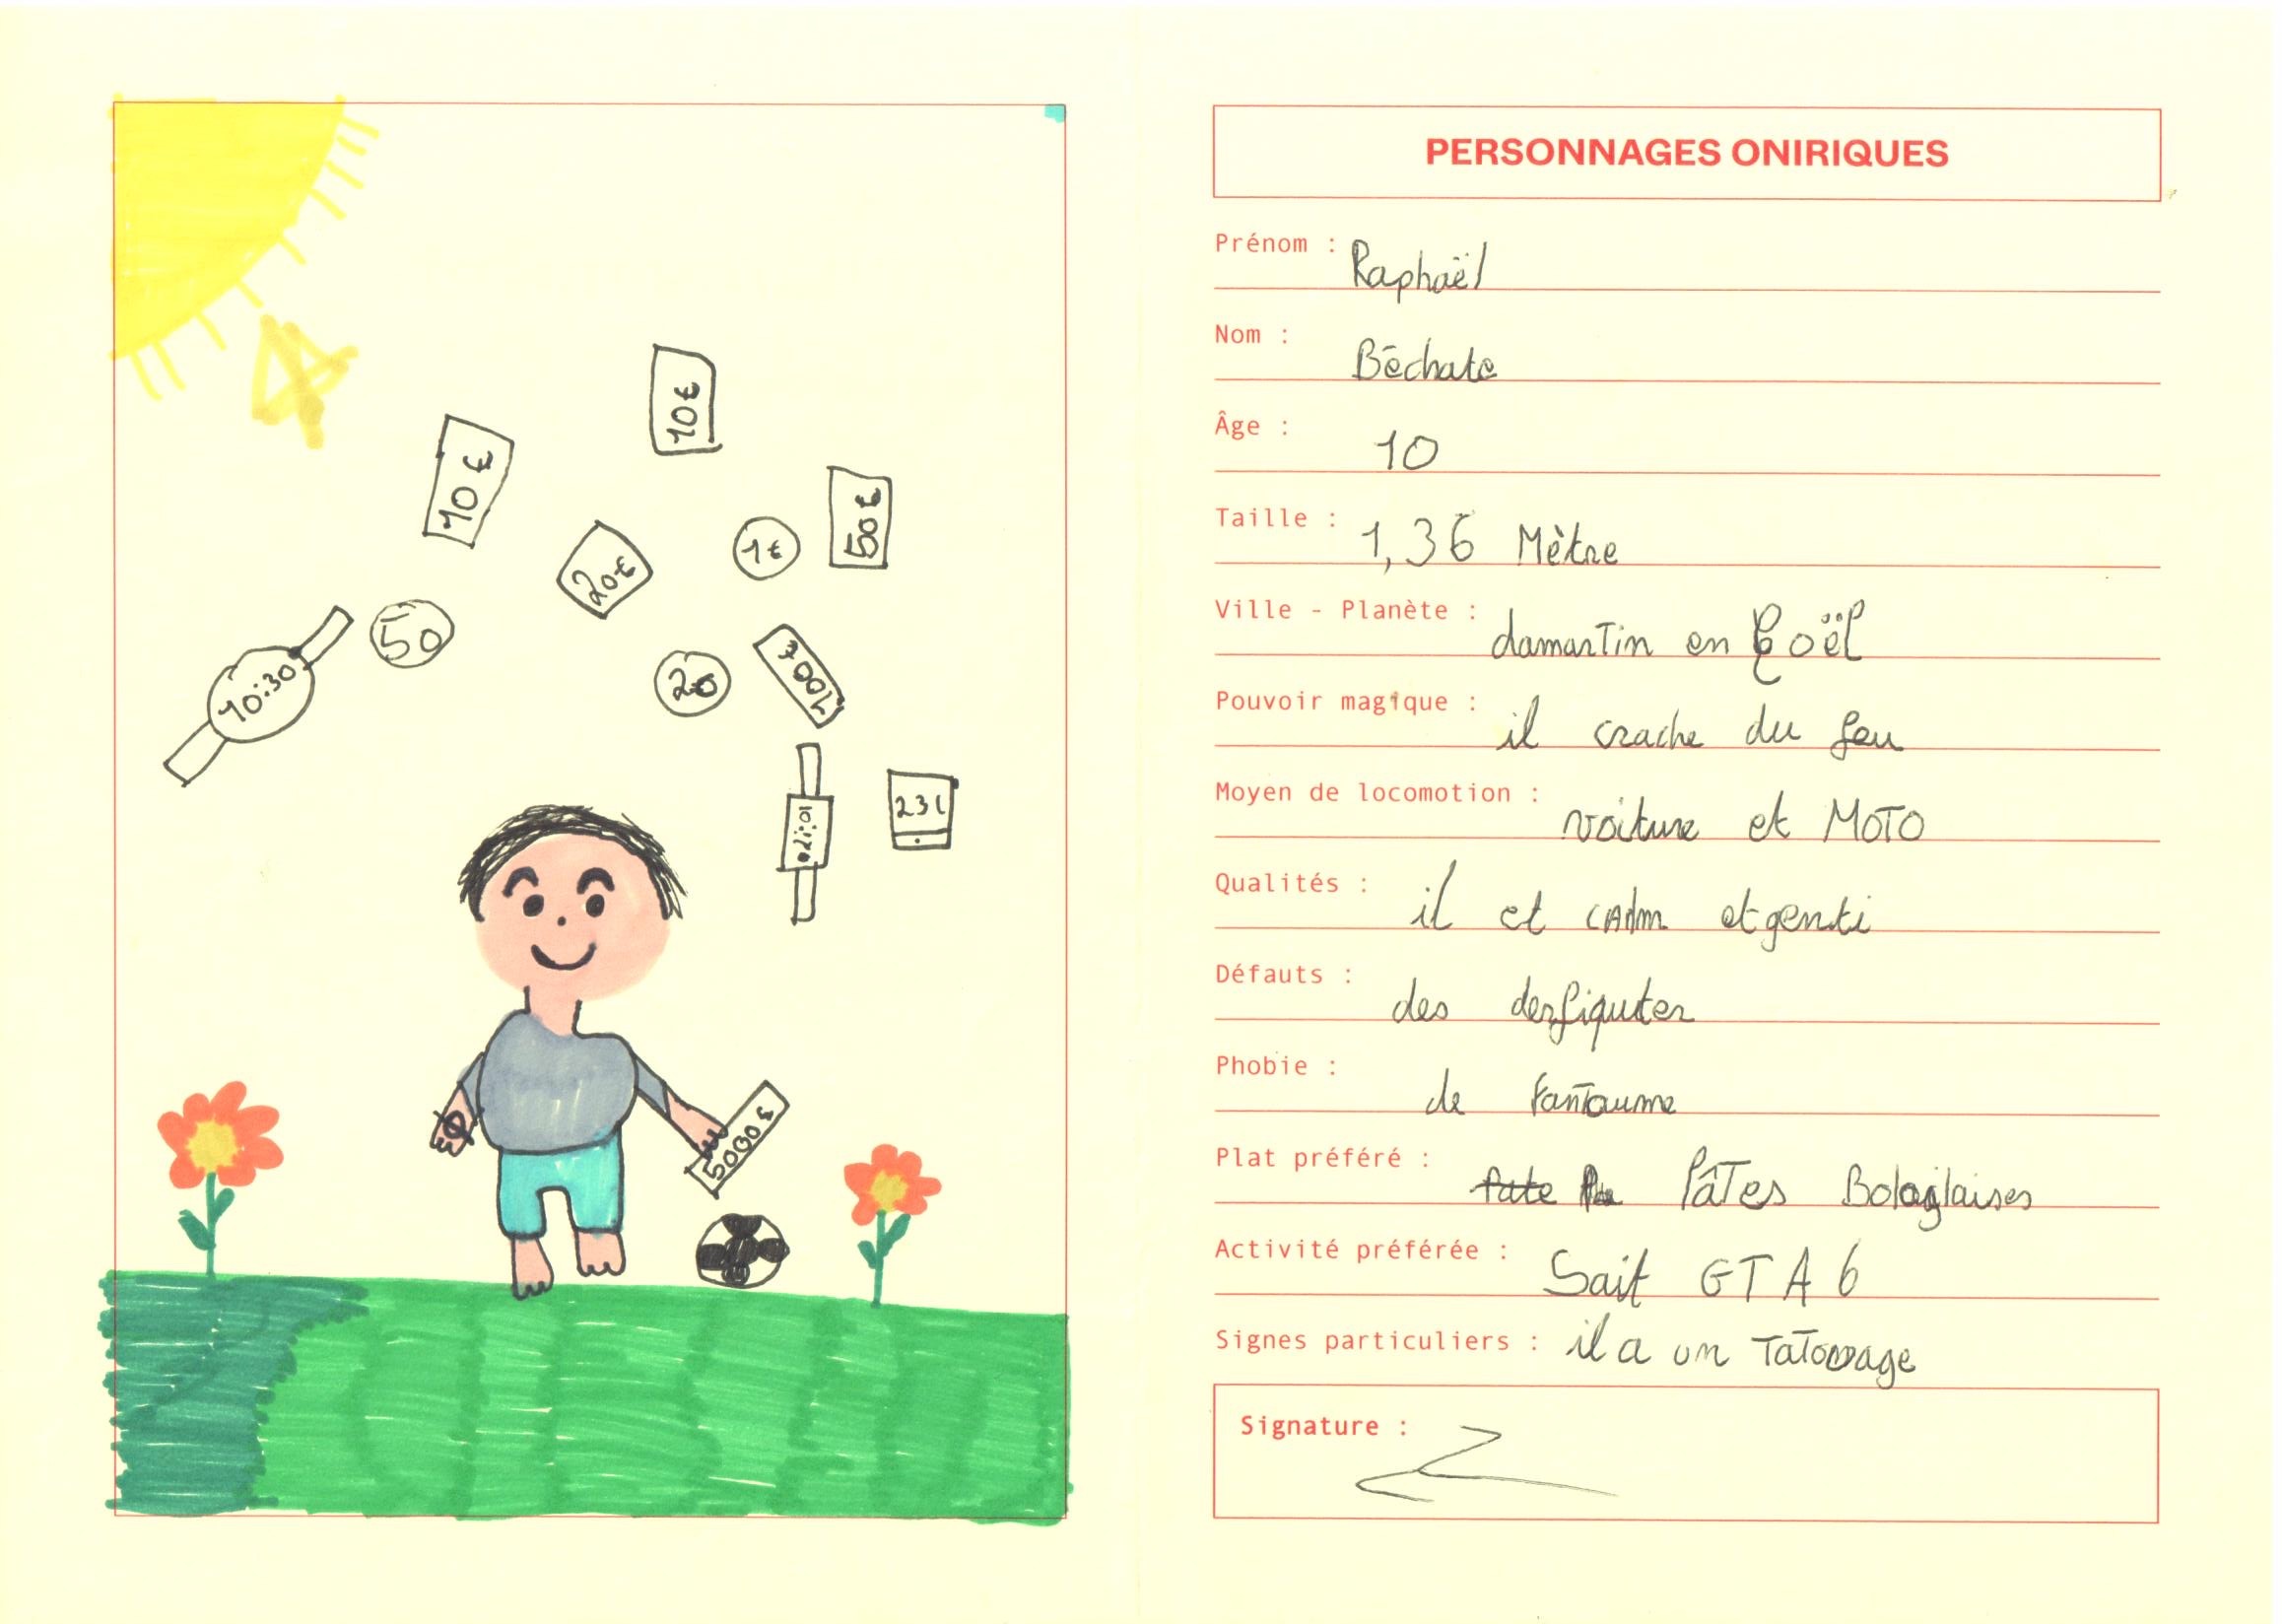 10€
10€
50€
20€
1€
50
10:30
20
100€
10:10
231
5000€
PERSONNAGES ONIRIQUES
Prénom : Raphaël
Nom : Béchate
Âge : 10
Taille : 1,36 Mètre
Ville - Planète : damartin en Goël
Pouvoir magique : il crache du feu
Moyen de locomotion : voiture et MOTO
Qualités : il et cAlm et genti
Défauts : des derfiquter
Phobie : de fanTaume
Plat préféré : fate Pa PâTes Bolaglaises
Activité préférée : Sait GTA 6
Signes particuliers : il a un TaTouage
Signature :